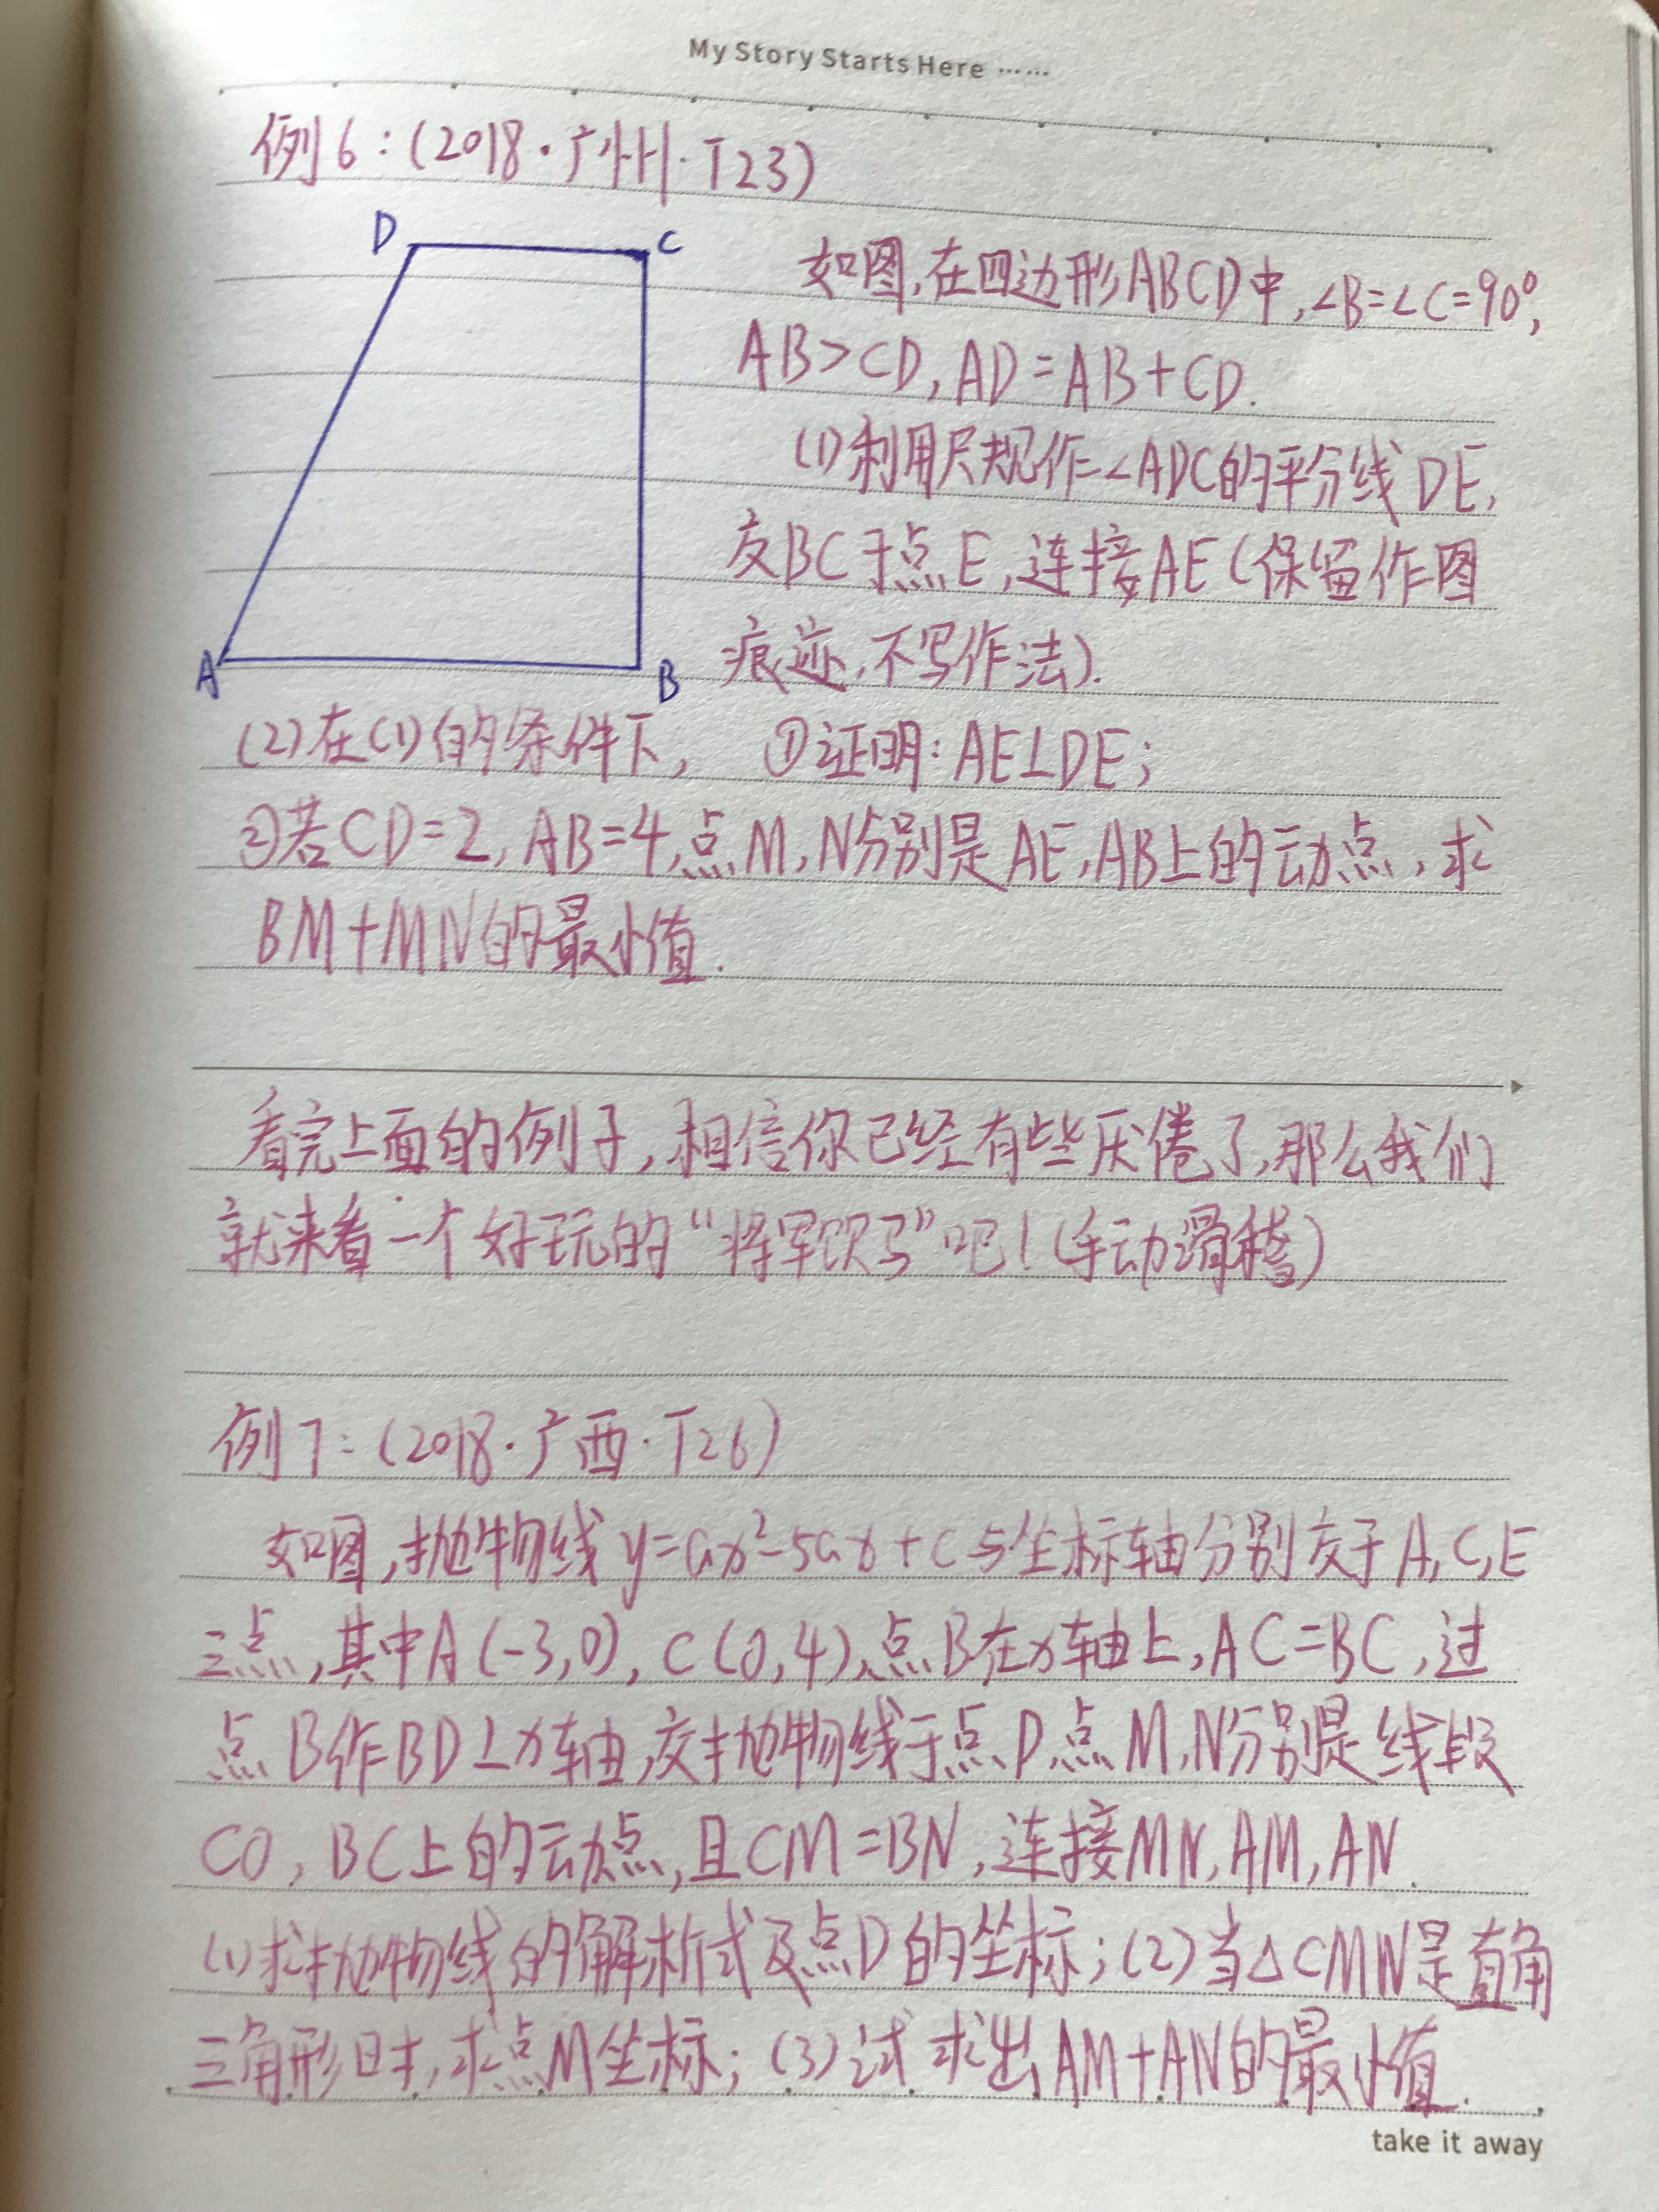 My Story Starts Here ······
例6:(2018·广州·T23)
D
C
如图,在四边形ABCD中,∠B=∠C=90°,
AB>CD,AD=AB+CD.
(1)利用尺规作∠ADC的平分线DE,
交BC于点E,连接AE(保留作图
痕迹,不写作法).
A
B
(2)在(1)的条件下, ①证明:AE⊥DE;
②若CD=2,AB=4,点M,N分别是AE,AB上的动点,求
BM+MN的最小值.
看完上面的例子,相信你已经有些厌倦了,那么我们
就来看一个好玩的“将军饮马”吧!(手动滑稽)
例7:(2018·广西·T26)
如图,抛物线y=ax²-5ax+c与坐标轴分别交于A,C,E
三点,其中A(-3,0),C(0,4),点B在x轴上,AC=BC,过
点B作BD⊥x轴,交抛物线于点D,点M,N分别是线段
CO,BC上的动点,且CM=BN,连接MN,AM,AN.
(1)求抛物线的解析式及点D的坐标;(2)当△CMN是直角
三角形时,求点M坐标;(3)试求出AM+AN的最小值.
take it away